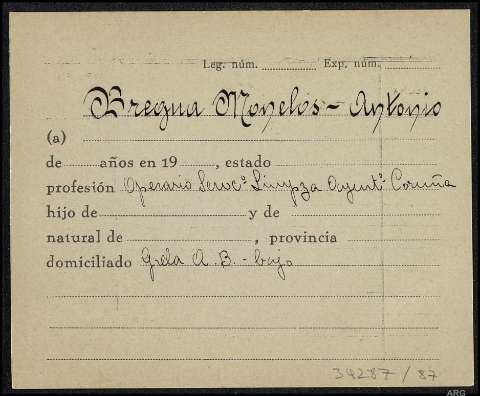 Leg. núm. Exp. núm.
Bregua Monelos - Antonio
(a)
de años en 19 , estado
profesión Operario Servcº. Limpza Ayuntº. Coruña
hijo de y de
natural de , provincia
domiciliado Grela A. B. - bajo
34287 / 87
ARG